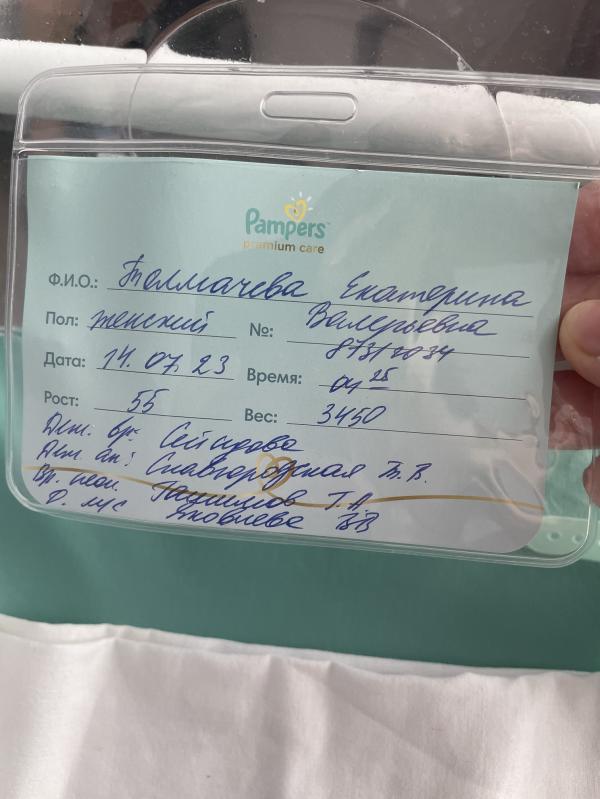 Pampers
premium care
Ф.И.О.: Толмачева Екатерина
Валерьевна
Пол: женский №: 873/2034
Дата: 14. 07. 23 Время: 04 25
Рост: 55 Вес: 3450
Дет. вр.
Дет. Славгородская Т. В.
Вр. неон. Т. А
Яковлева